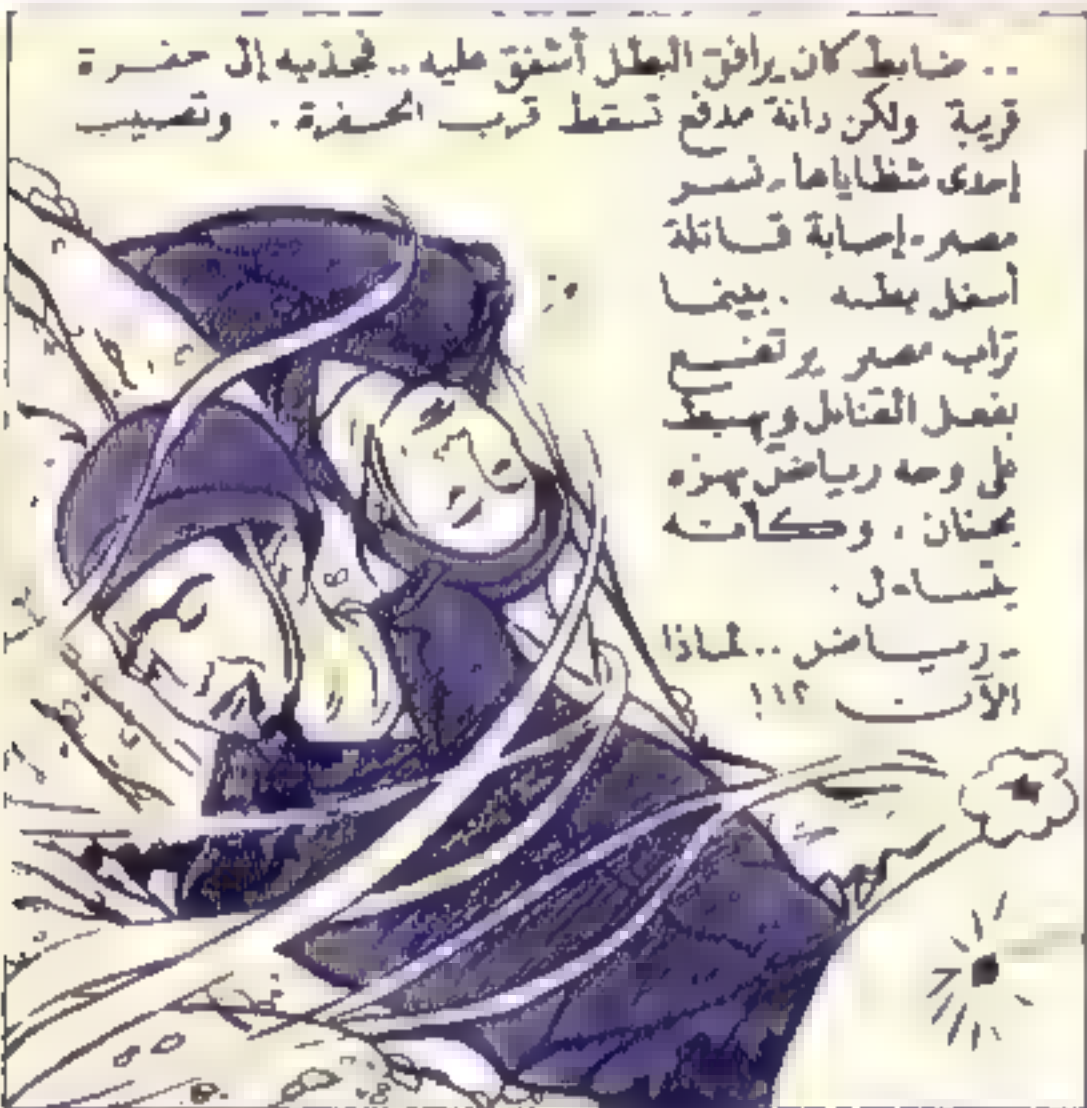 .. ضابط كان يرافق البطل أشفق عليه .. فجذبه إلى حفرة
قريبة ولكن دانة مدفع تسقط قرب الحفرة . وتصيب
إحدى شظاياها ـ نسر
مصر ـ إصابة قاتلة
أسفل بطنه . بينما
تراب مصر يرتفع
بفعل القنابل ويهبط
على وجه رياض يهزه
بحنان ، وكأنه
يتساءل .
ـ رياض .. لماذا
الآن ؟!!